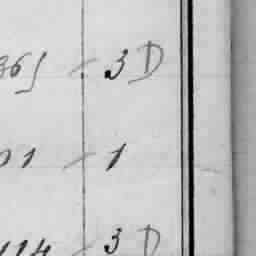 365 - 3 D
01 - 1
114 - 3 D